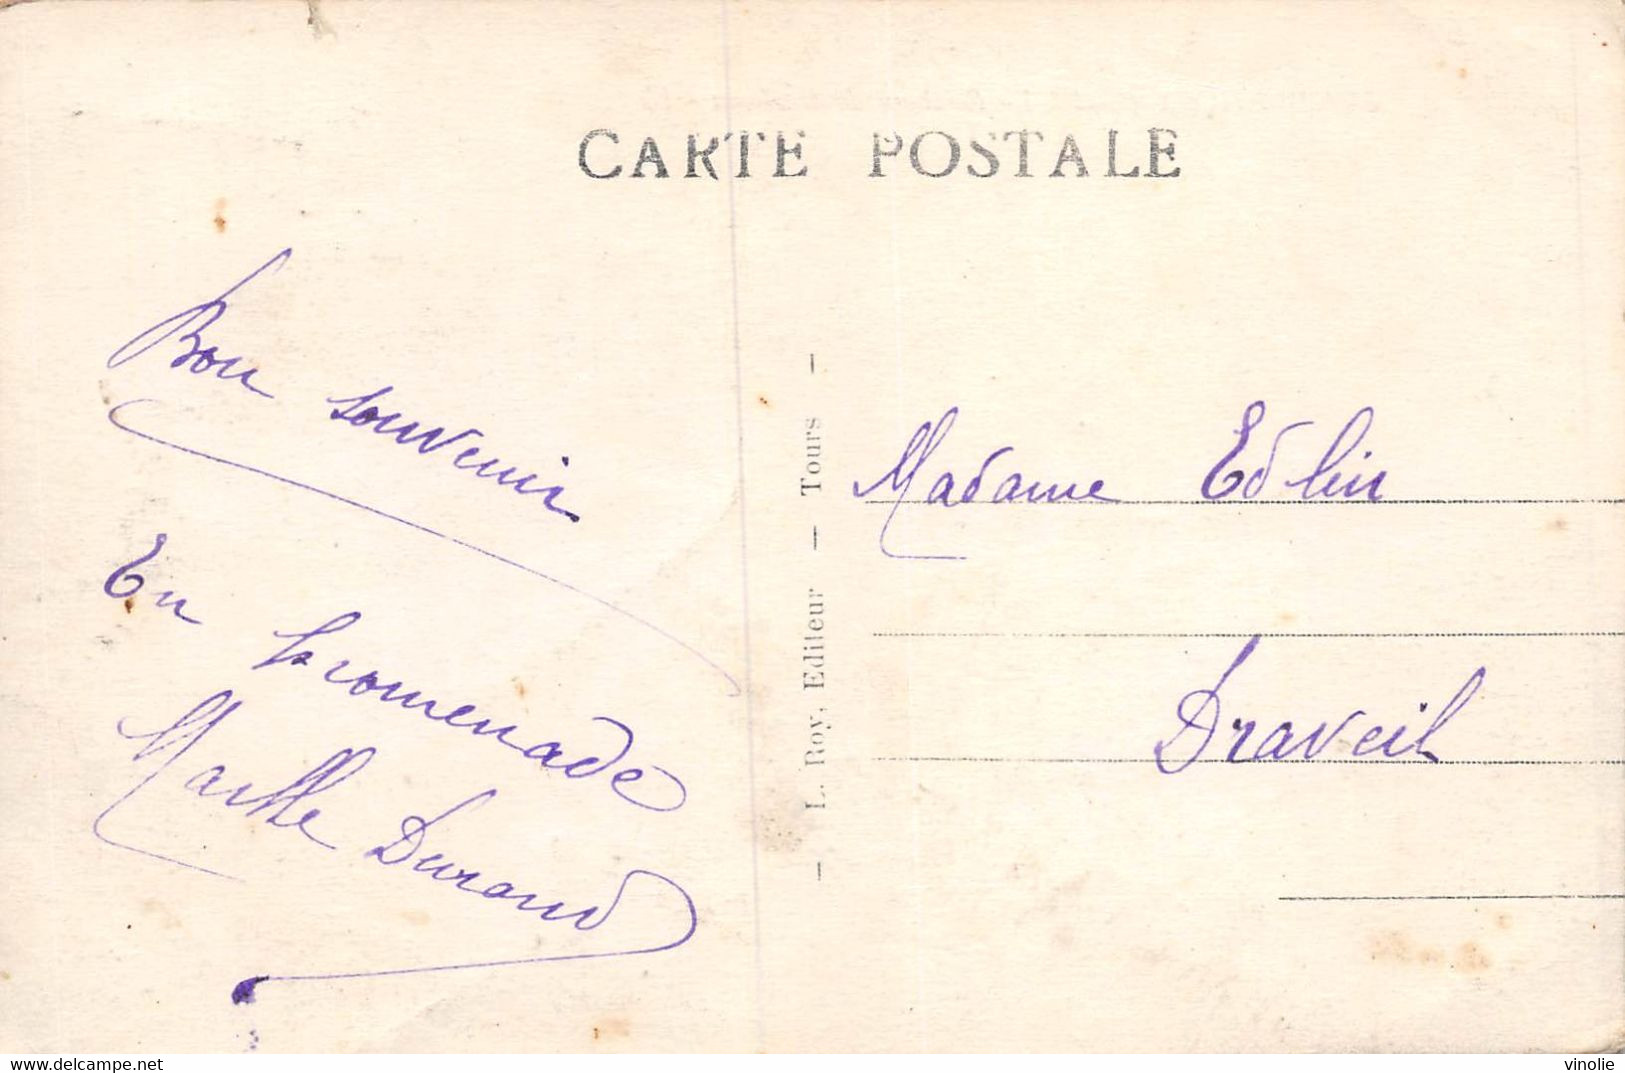 CARTE POSTALE
Bon souvenir
En promenade
Durand
— L. Roy, Editeur — Tours —
Madame Edlin
Draveil
delcampe.net
vinolie